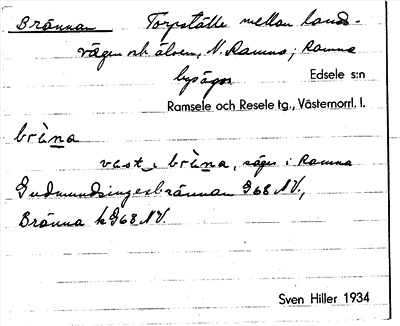 Brännan Torpställe mellan lands-
vägen och älven, N. Ramna; Ramna
byägor Edsele s:n
Ramsele och Resele tg., Västernorrl. l.
brèna
väst i brèna, säges i Ramna
Gudmundsingesbrännan G68 NV.,
Bränna h G68 NV.
Sven Hiller 1934